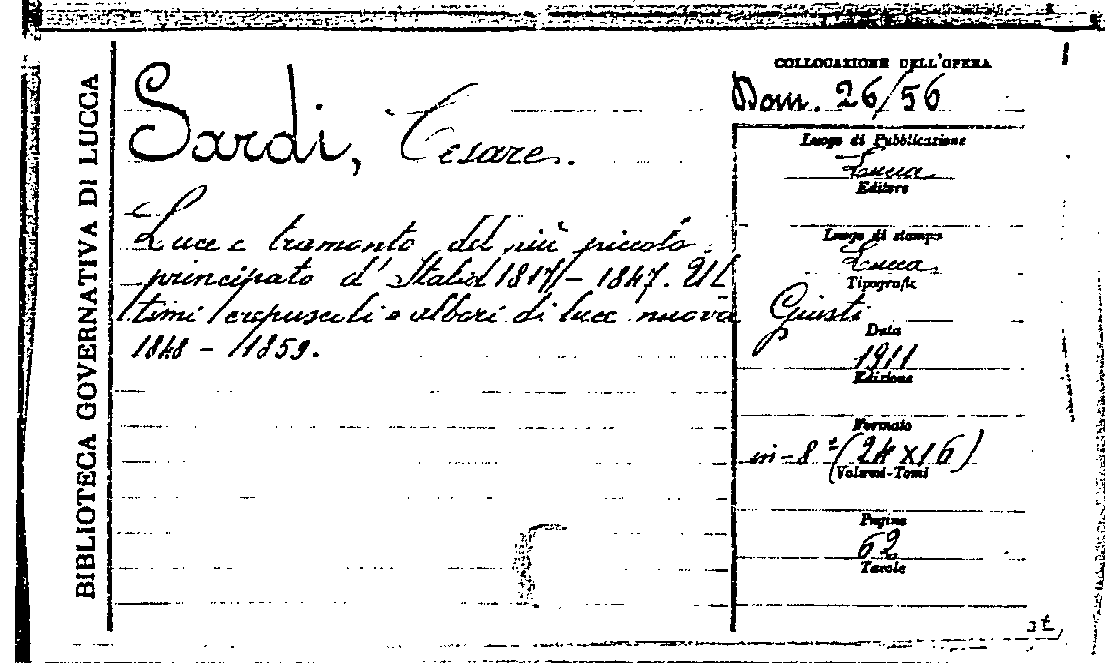 BIBLIOTECA GOVERNATIVA DI LUCCA
Sardi, Cesare.
Lucca e tramonto del più piccolo
principato d'Italia 1817 - 1847. Ul
timi crepuscoli e albori di luce nuova
1848 - 1859.
COLLOCAZIONE DELL'OPERA
Dom. 26/56
Luogo di Pubblicazione
Lucca
Editore
Luogo di stampa
Lucca
Tipografia
Giusti
Data
1911
Edizione
Formato
in-8° (24 x 16)
Volumi-Tomi
Pagine
62
Tavole